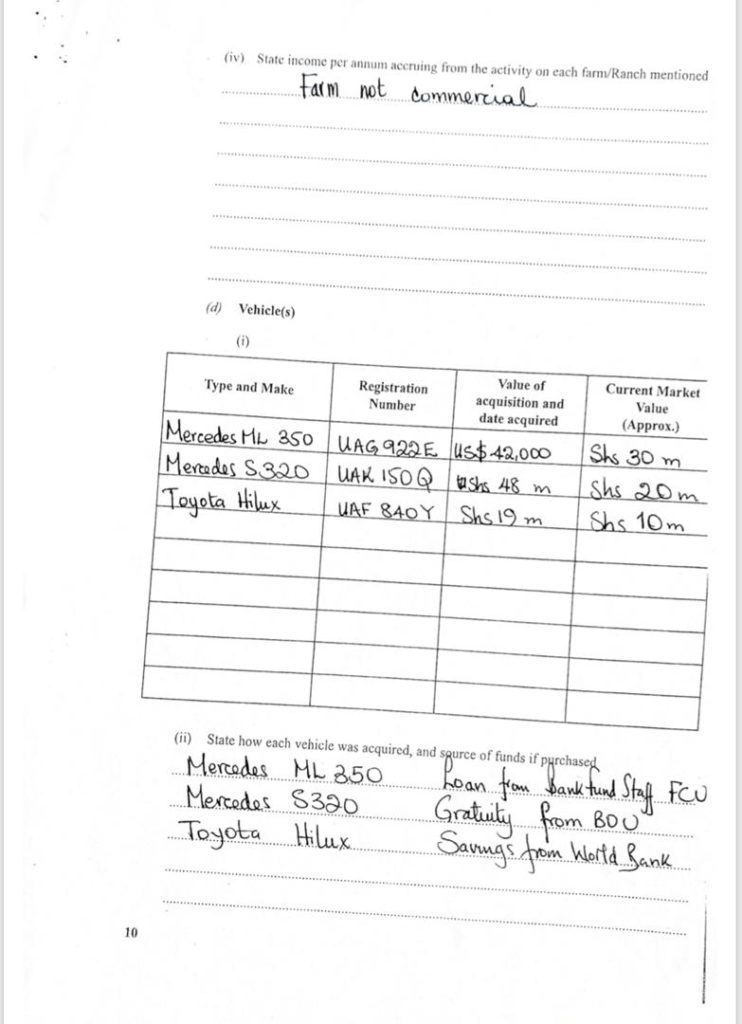 (iv) State income per annum accruing from the activity on each farm/Ranch mentioned
Farm not commercial
(d) Vehicle(s)
(i)
Type and Make | Registration Number | Value of acquisition and date acquired | Current Market Value (Approx.)
Mercedes ML 350 | UAG 922E | US$ 42,000 | Shs 30 m
Mercedes S320 | UAK 150Q | Shs 48 m | Shs 20 m
Toyota Hilux | UAF 840Y | Shs 19 m | Shs 10 m
(ii) State how each vehicle was acquired, and source of funds if purchased
Mercedes ML 350 Loan from Bank Fund Staff FCU
Mercedes S320 Gratuity from BOU
Toyota Hilux Savings from World Bank
10